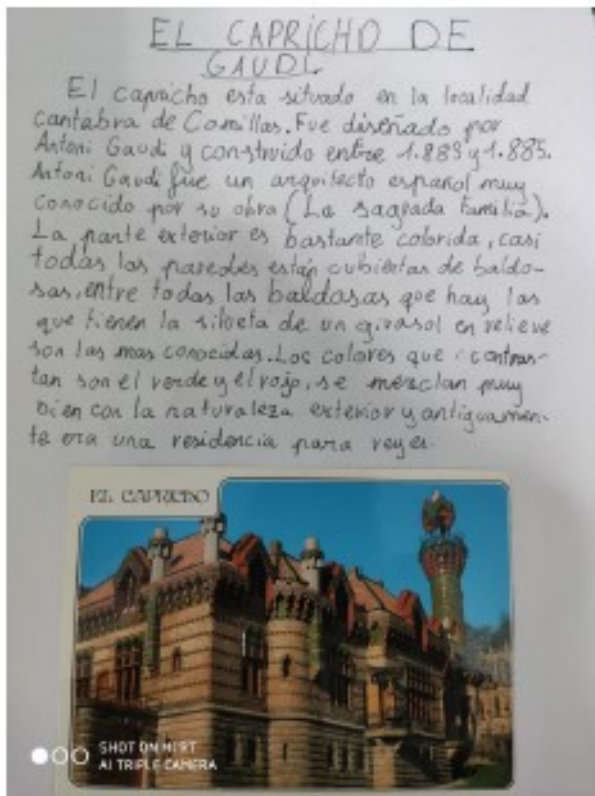 EL CAPRICHO DE
GAUDI
El capricho esta situado en la localidad
cantabra de Comillas. Fue diseñado por
Antoni Gaudi y construido entre 1.883 y 1.885.
Antoni Gaudi fue un arquitecto español muy
conocido por su obra (La sagrada familia).
La parte exterior es bastante colorida, casi
todas las paredes están cubiertas de baldo-
sas, entre todas las baldosas que hay las
que tienen la silueta de un girasol en relieve
son las mas conocidas. Los colores que contras-
tan son el verde y el rojo, se mezclan muy
bien con la naturaleza exterior y antiguamen-
te era una residencia para reyes.
EL CAPRICHO
SHOT ON MI 9T
AI TRIPLE CAMERA